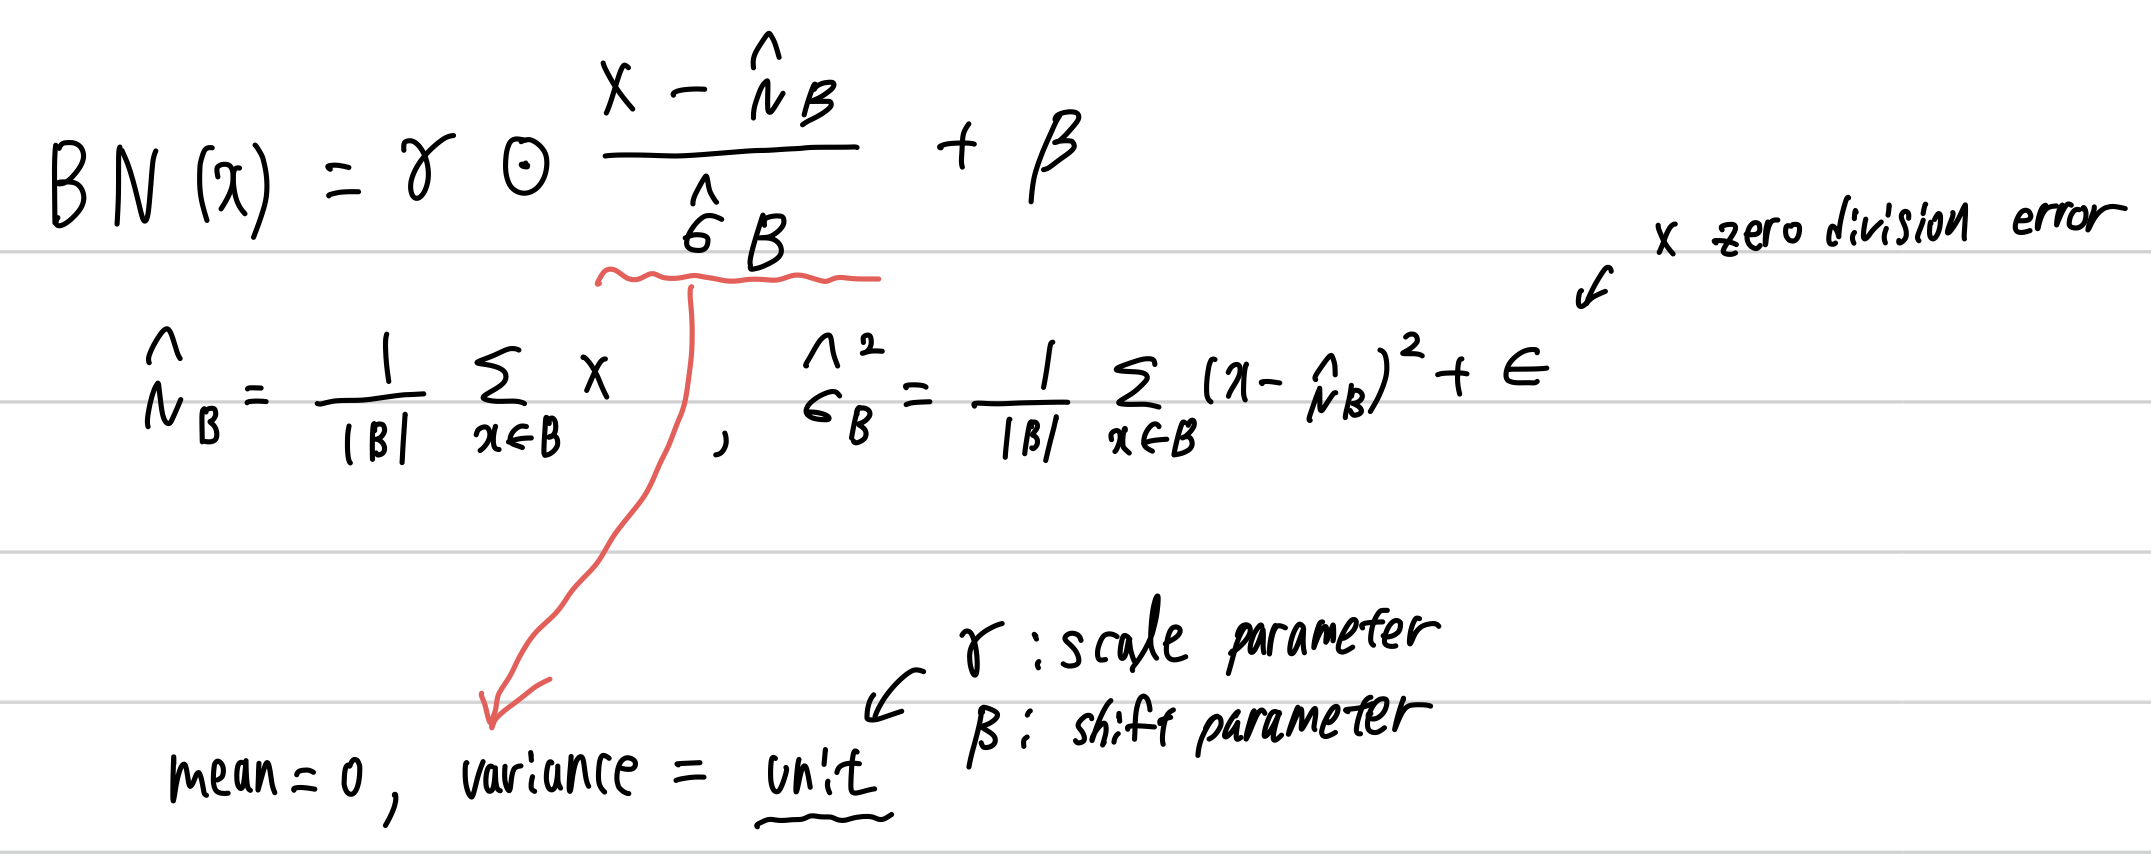 BN(x) = γ ⊙ (x - μ̂_B) / σ̂_B + β
x zero division error
μ̂_B = 1/|B| Σ_{x∈B} x , σ̂_B² = 1/|B| Σ_{x∈B} (x - μ̂_B)² + ϵ
γ : scale parameter
β : shift parameter
mean = 0, variance = unit